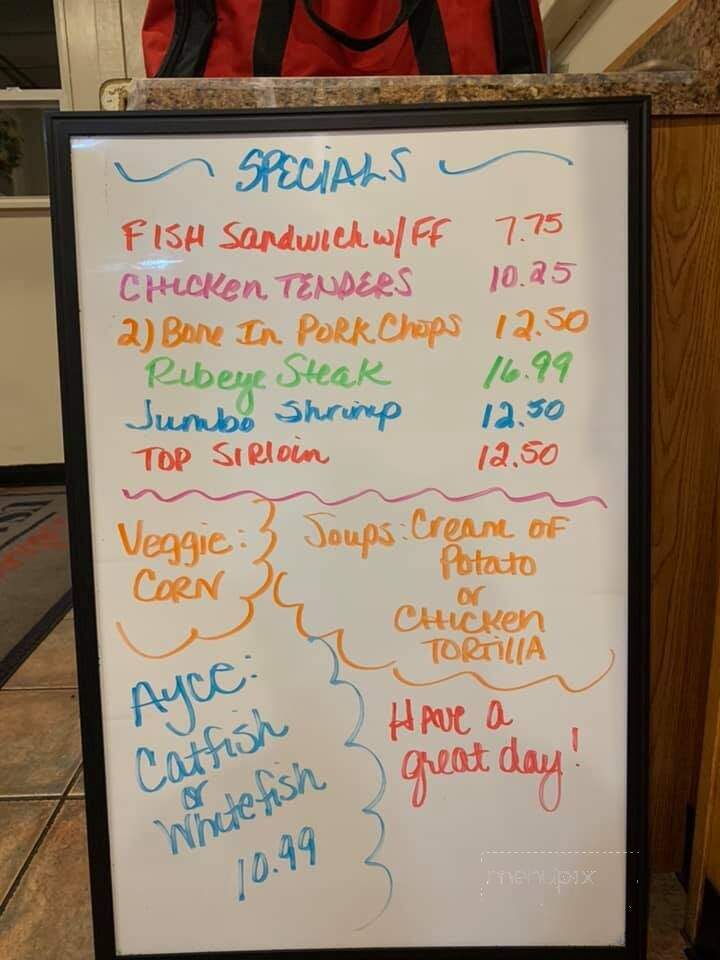 SPECIALS
FISH Sandwich w/ FF 7.75
CHICKEN TENDERS 10.25
2) Bone In Pork Chops 12.50
Ribeye Steak 16.99
Jumbo Shrimp 12.50
TOP SIRloin 12.50
Veggie:
CORN
Soups: Cream of
Potato
or
CHICKEN
TORTILLA
Ayce:
Catfish
or
Whitefish
10.99
Have a
great day!
menupix